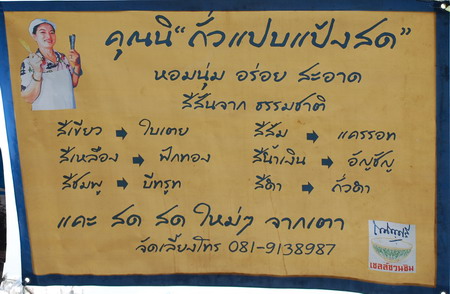 คุณนิ "ถั่วแปบแป้งสด"
หอมนุ่ม อร่อย สะอาด
สีสันจาก ธรรมชาติ
สีเขียว → ใบเตย สีส้ม → แครรอท
สีเหลือง → ฟักทอง สีน้ำเงิน → อัญชัญ
สีชมพู → บีทรูท สีดำ → ถั่วดำ
แคะ สด สด ใหม่ๆ จากเตา
จัดเลี้ยงโทร 081-9138987
เชลล์ชวนชิม